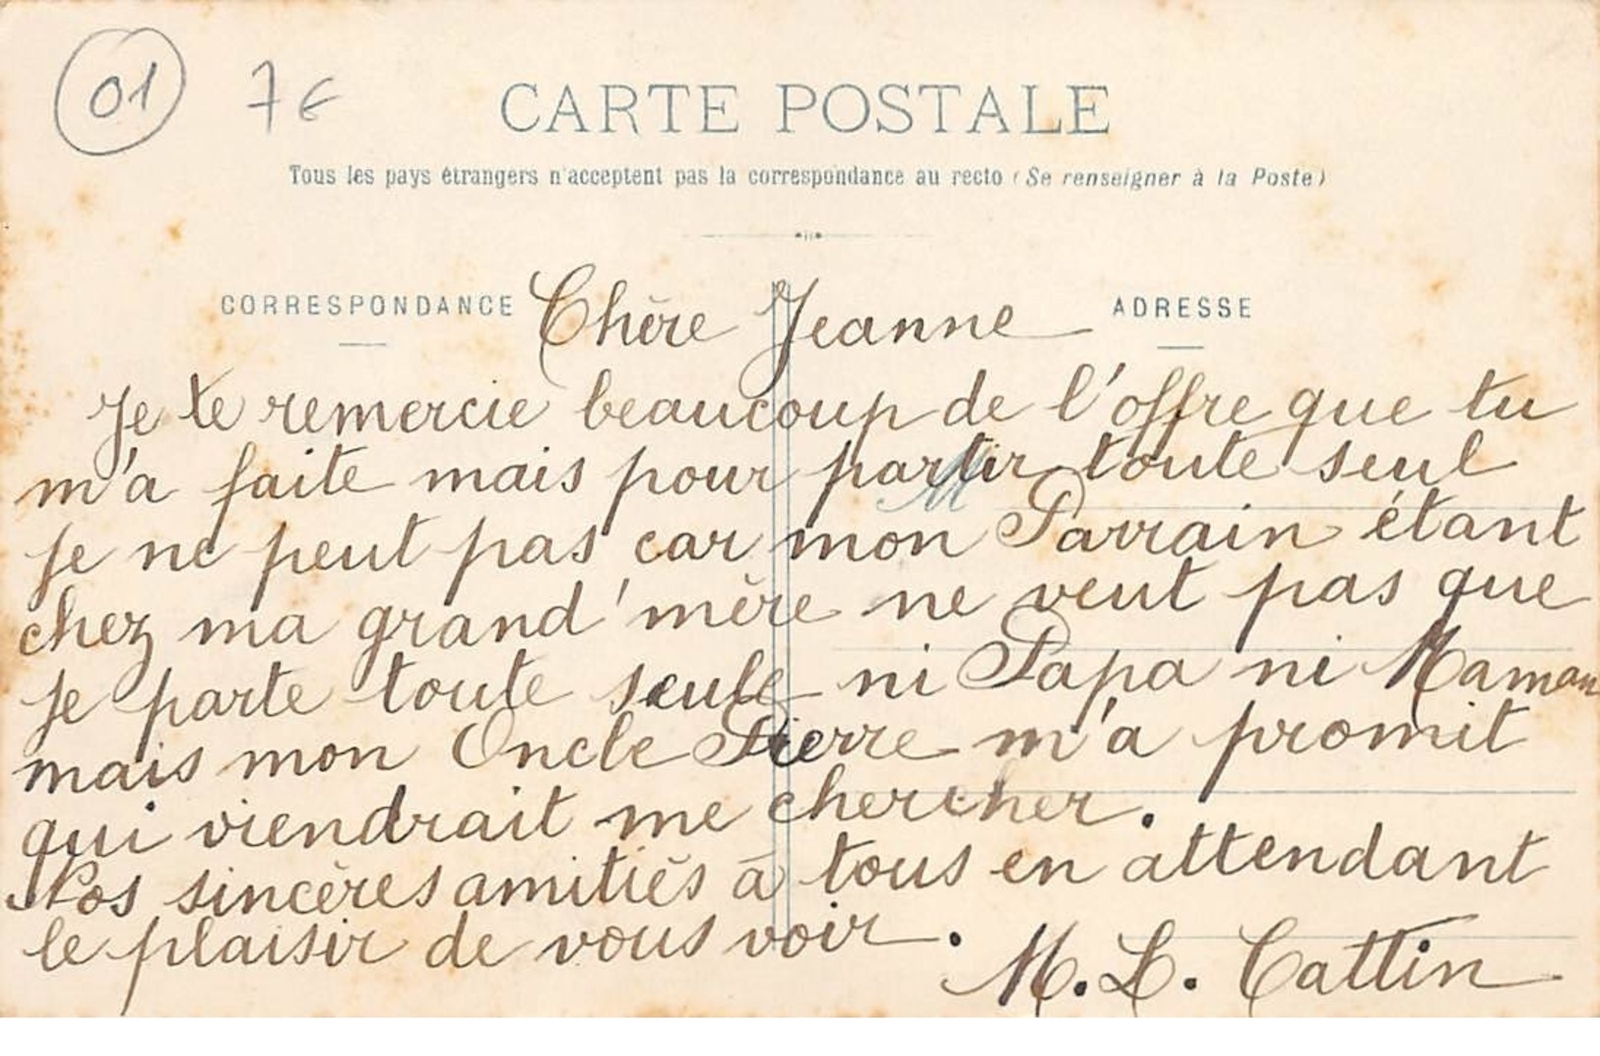 01 7€
CARTE POSTALE
Tous les pays étrangers n'acceptent pas la correspondance au recto (Se renseigner à la Poste)
CORRESPONDANCE
ADRESSE
Chère Jeanne
Je te remercie beaucoup de l'offre que tu
m'a faite mais pour partir toute seul
je ne peut pas car mon Parrain étant
chez ma grand'mère ne veut pas que
je parte toute seule ni Papa ni Maman
mais mon Oncle Pierre m'a promit
qui viendrait me chercher.
Nos sincères amitiés à tous en attendant
le plaisir de vous voir.
M. L. Cattin